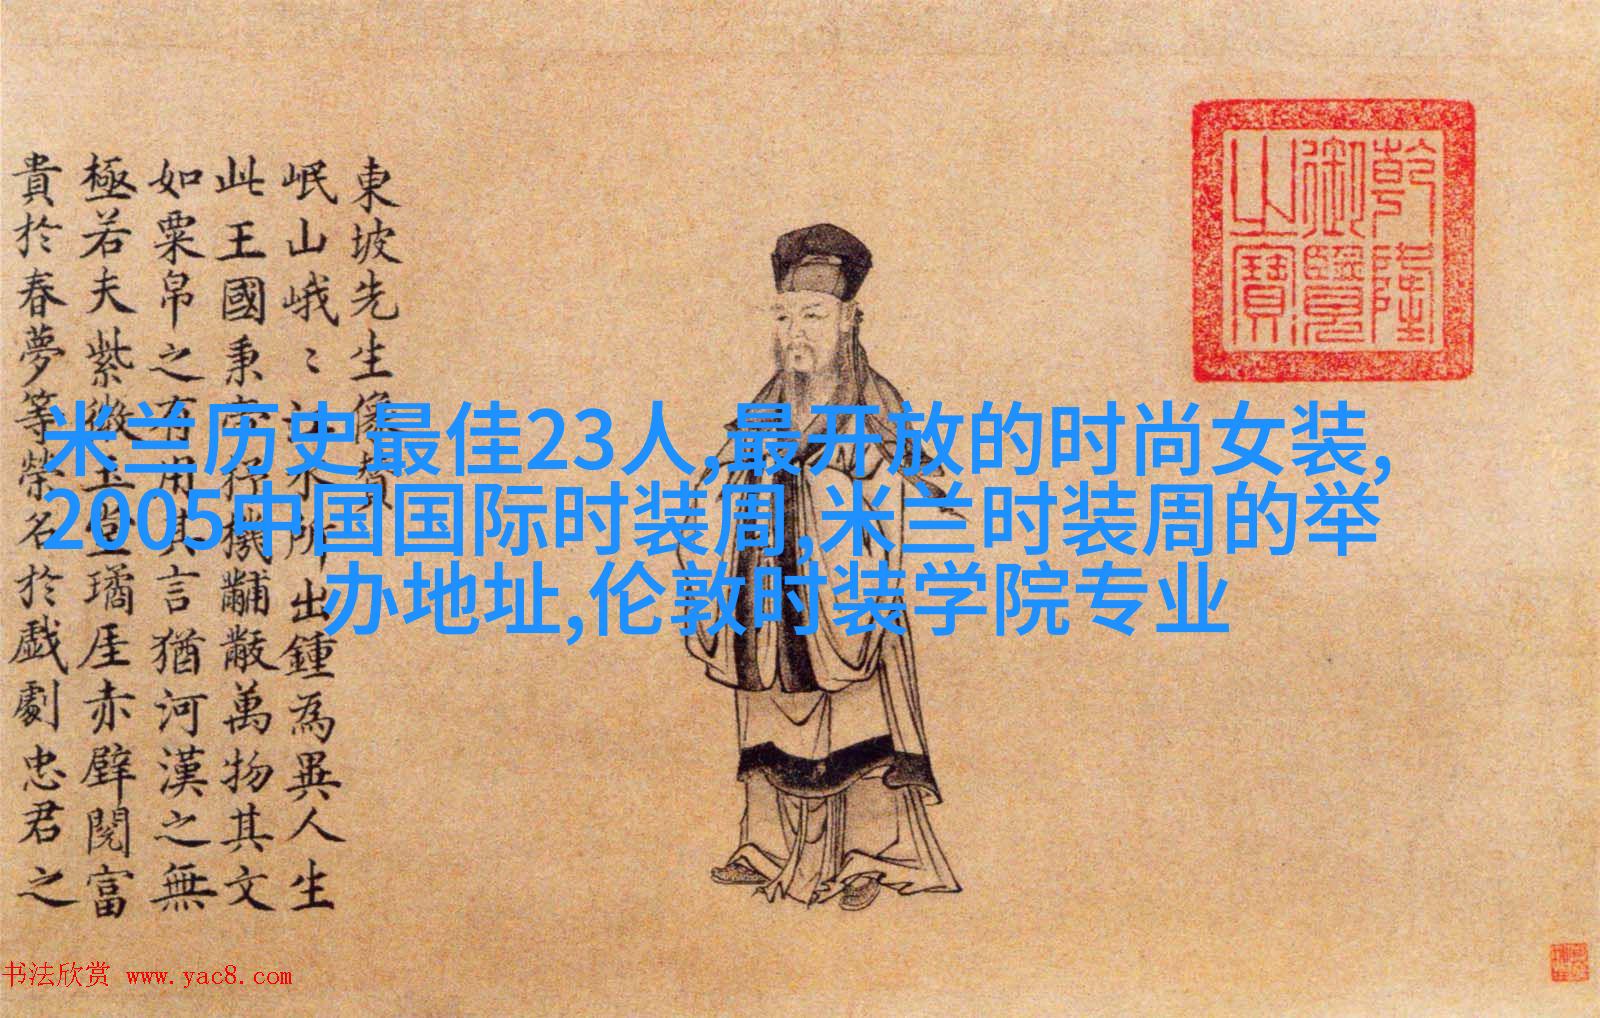 東坡先生像贊
岷山峨〻江水所出鍾為異人生
此王國秉帝杼機黼黻萬物其文
如粟帛之有用其言猶河漢之無
極若夫紫微玉堂璚厓赤壁閱富
貴於春夢等榮名於戲劇忠君之
乾隆
御覽
之寶
米兰历史最佳23人,最开放的时尚女装,
2005中国国际时装周,米兰时装周的举
办地址,伦敦时装学院专业
书法欣赏 www.yac8.com